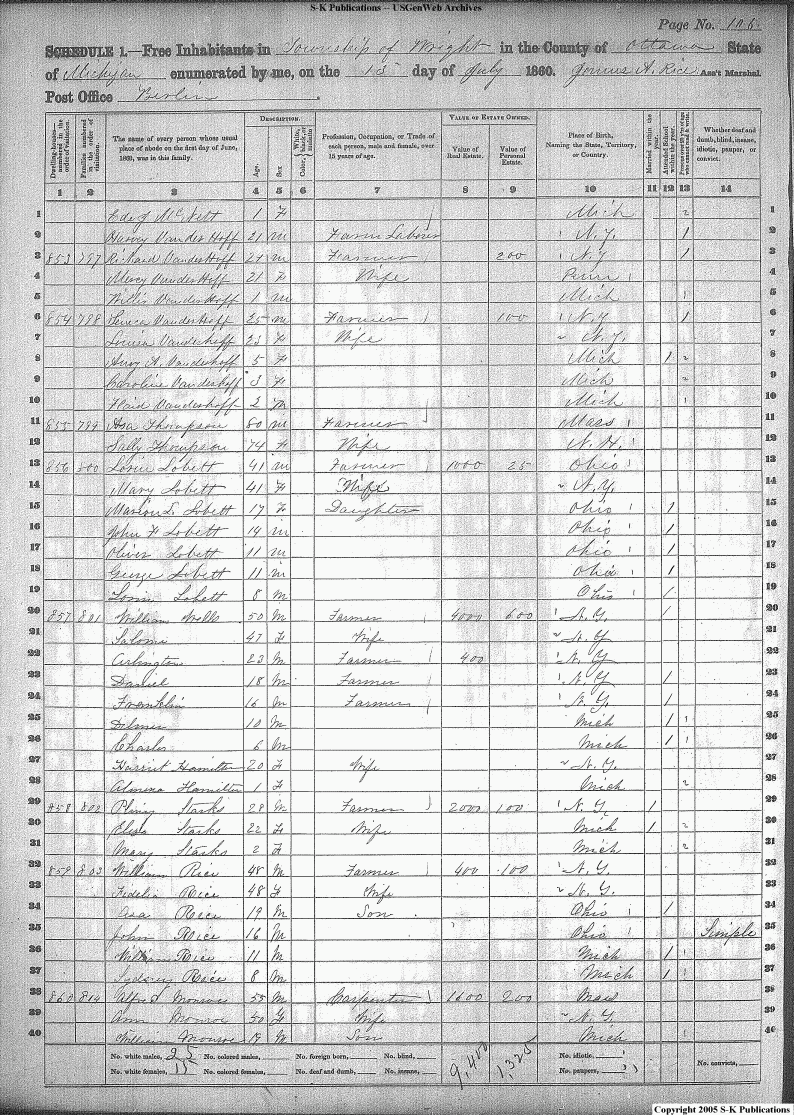 S-K Publications -- USGenWeb Archives
Page No. 106
SCHEDULE 1.—Free Inhabitants in Township of Wright in the County of Ottawa State
of Michigan enumerated by me, on the 13 day of July 1860. A. Rice Ass't Marshal.
Post Office Berlin
DESCRIPTION. VALUE OF ESTATE OWNED.
Dwelling-houses—numbered in the order of visitation. Families numbered in the order of visitation. The name of every person whose usual place of abode on the first day of June, 1860, was in this family. Age. Sex. Color, White, black, or mulatto. Profession, Occupation, or Trade of each person, male and female, over 15 years of age. Value of Real Estate. Value of Personal Estate. Place of Birth, Naming the State, Territory, or Country. Married within the year. Attended School within the year. Persons over 20 y'rs of age who cannot read & write. Whether deaf and dumb, blind, insane, idiotic, pauper, or convict.
1 2 3 4 5 6 7 8 9 10 11 12 13 14
1 McNett 1 F Mich 2 1
2 Harvey VanderHoff 21 m Farm Laborer N.Y. 1 2
3 853 797 Richard VanderHoff 27 m Farmer 200 N.Y 1 3
4 Mercy VanderHoff 21 F Wife Penn 4
5 Willis VanderHoff 1 m Mich 5
6 854 798 Seneca Vanderhoff 25 m Farmer 100 N.Y 1 6
7 Louisa Vanderhoff 23 F Wife N.Y. 7
8 Amy A. Vanderhoff 5 F Mich 1 2 8
9 Caroline Vanderhoff 3 F Mich 2 9
10 Vanderhoff 2 m Mich 10
11 855 799 Asa Thompson 80 m Farmer Mass 11
12 Sally Thompson 74 F Wife N.H. 12
13 856 800 Lorin Lobett 41 m Farmer 1000 25 Ohio 13
14 Mary Lobett 41 F Wife N.Y. 14
15 Marion L. Lobett 17 F Daughter Ohio 1 15
16 John F Lobett 14 m Ohio 1 16
17 Oliver Lobett 11 m Ohio 1 17
18 George Lobett 11 m Ohio 1 18
19 Lorin Lobett 8 m Ohio 1 19
20 857 801 William Wells 50 M Farmer 4000 600 N.Y. 1 20
21 Salome 47 F Wife N.Y 21
22 Arlington 23 M Farmer 400 N.Y 22
23 Daniel 18 M Farmer N.Y 1 23
24 Franklin 16 M Farmer N.Y. 1 24
25 Dilmer 10 M Mich 1 25
26 Charles 6 M Mich 1 26
27 Harriet Hamilton 20 F Wife N.Y. 27
28 Almena Hamilton 1 F Mich 2 28
29 858 802 Pliny Starks 28 M Farmer 2000 100 N.Y. 1 29
30 Eliza Starks 22 F Wife Mich 1 2 30
31 Mary Starks 2 F Mich 2 31
32 859 803 William Rice 48 M Farmer 400 100 N.Y. 32
33 Fidelia Rice 48 F Wife N.Y. 33
34 Asa Rice 19 M Son Ohio 1 34
35 John Rice 16 M Ohio Simple 35
36 William Rice 11 M Mich 1 36
37 Sydney Rice 8 M Mich 1 37
38 860 804 Alfred Monroe 55 M Carpenter 1600 200 Mass 38
39 Ann Monroe 50 F Wife N.Y. 39
40 William Monroe 19 M Son Mich 40
No. white males, 25 No. colored males, No. foreign born, No. blind, 9,400 1,325 No. idiotic, No. convicts,
No. white females, 15 No. colored females, No. deaf and dumb, No. insane, No. paupers,
Copyright 2005 S-K Publications